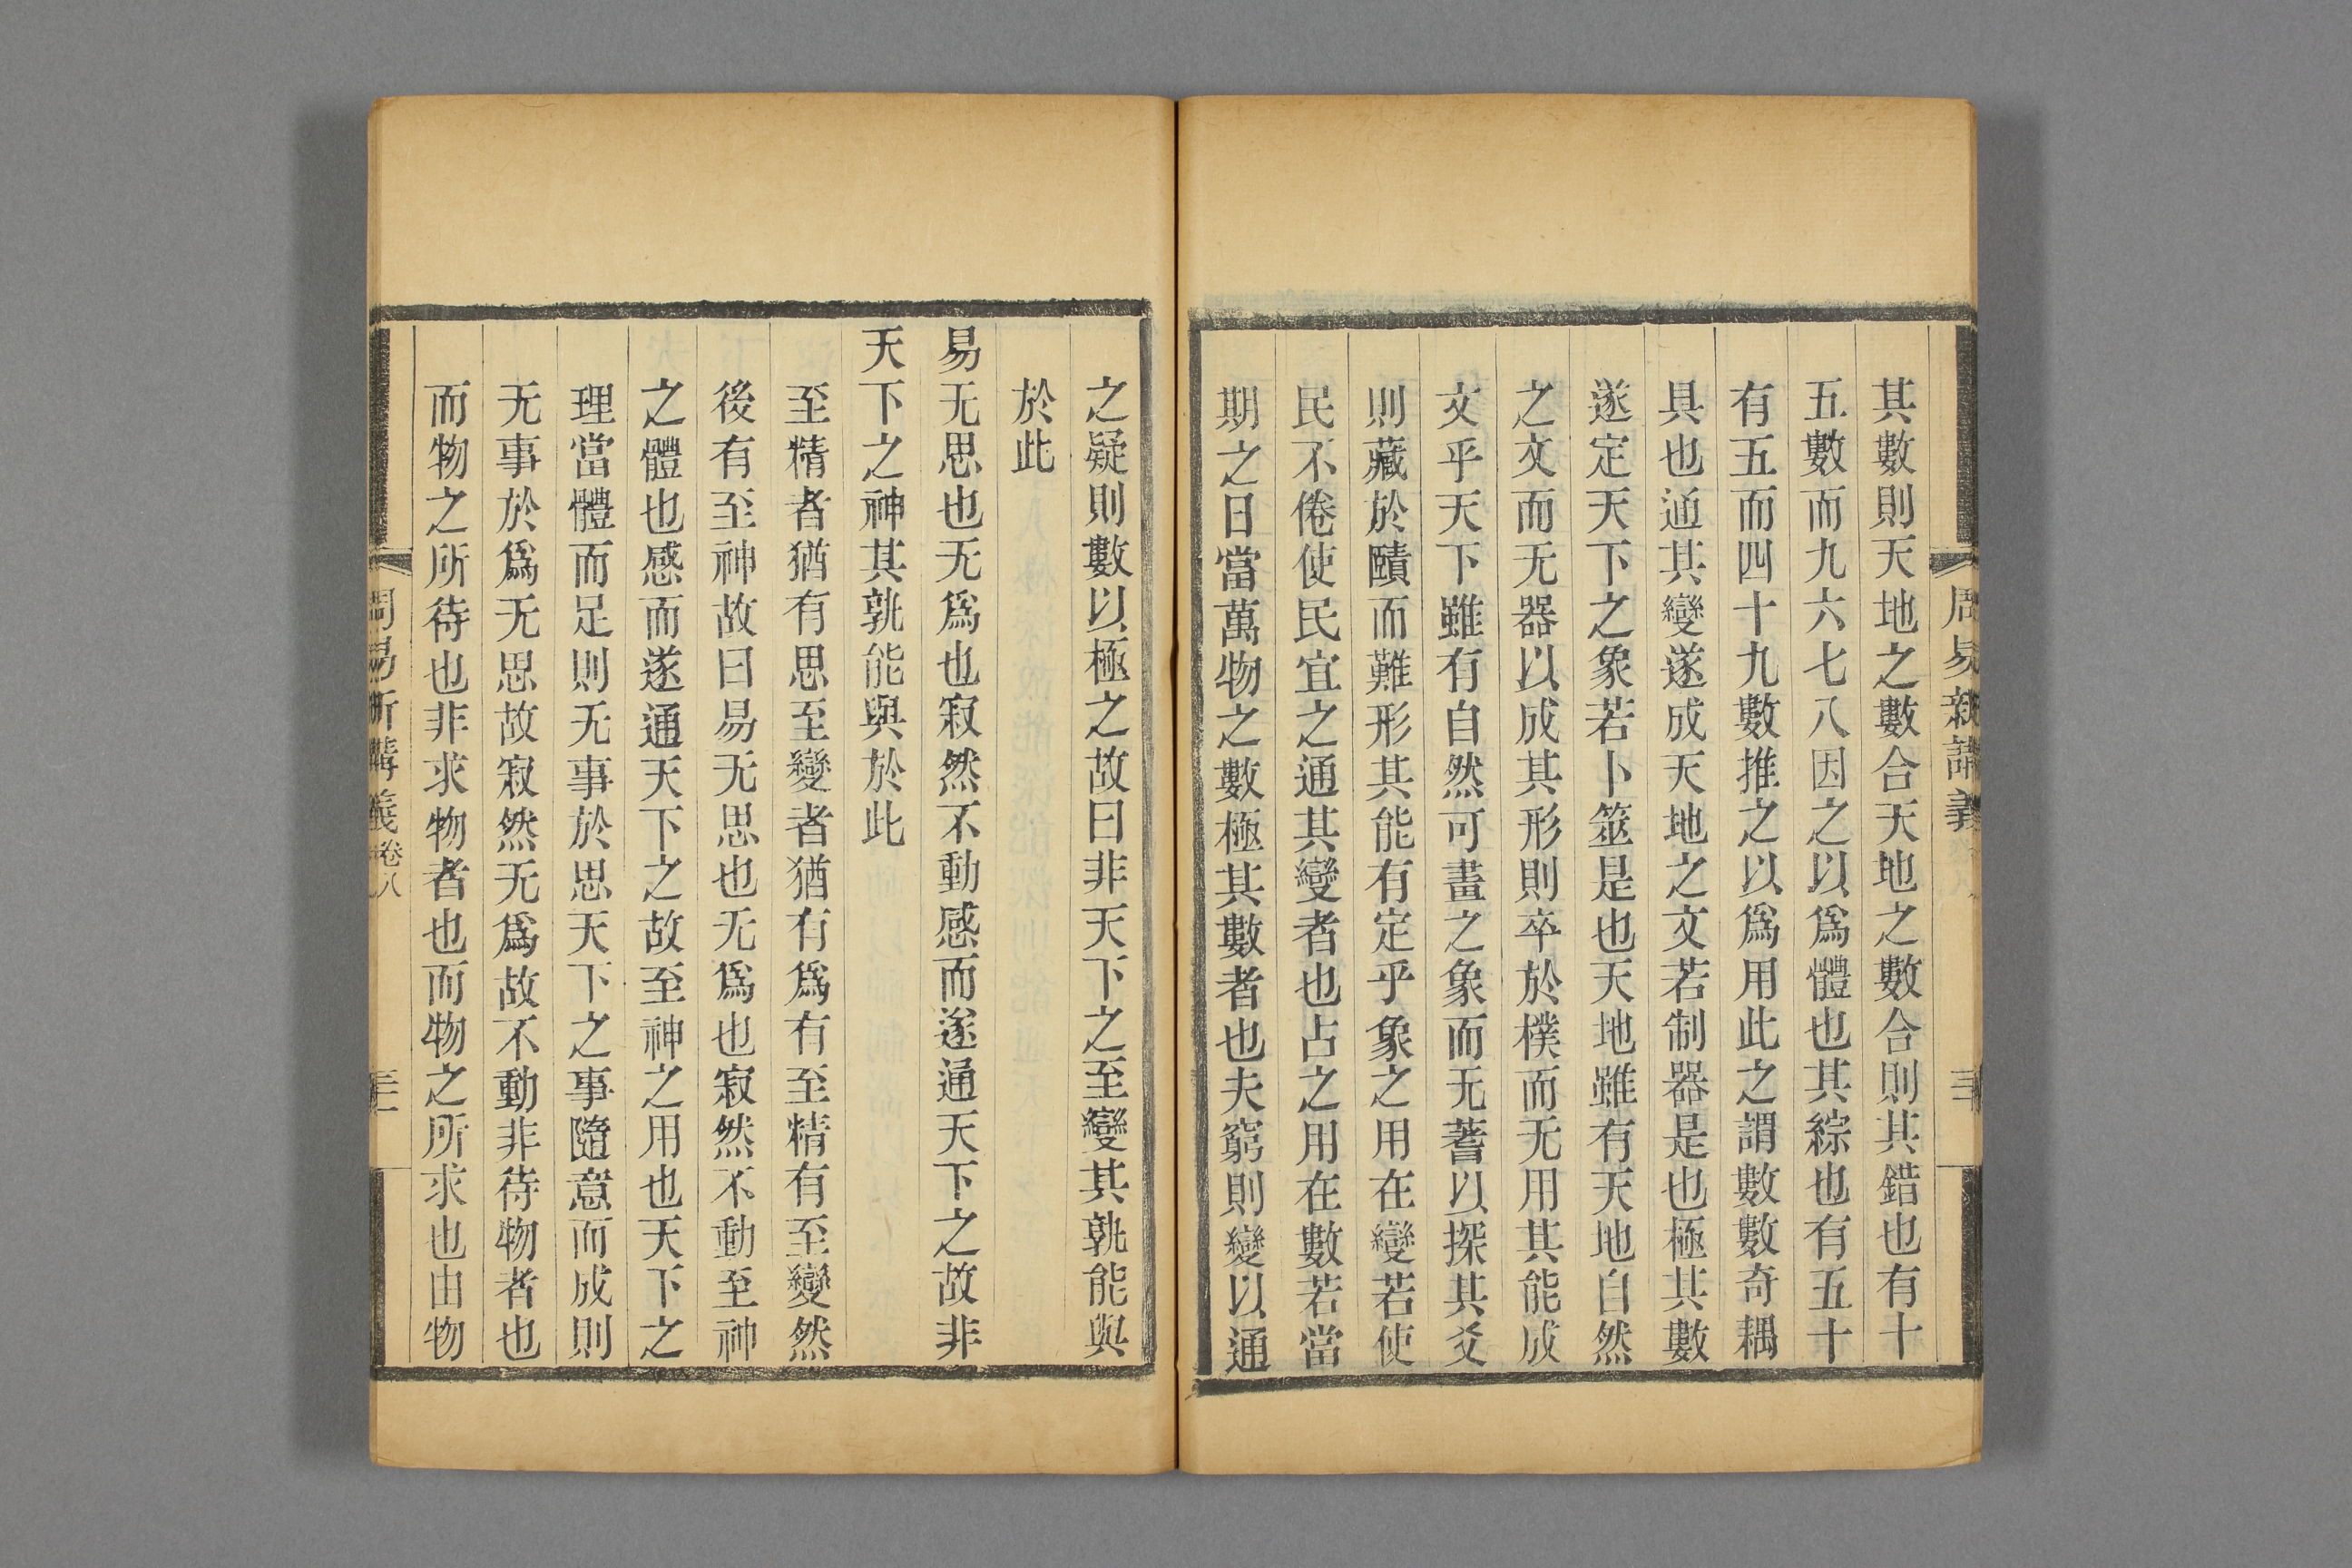 周易新講義
三十
其數則天地之數合天地之數合則其錯也有十
五數而九六七八因之以爲體也其綜也有五十
有五而四十九數推之以爲用此之謂數數奇耦
具也通其變遂成天地之文若制器是也極其數
遂定天下之象若卜筮是也天地雖有天地自然
之文而无器以成其形則卒於樸而无用其能成
文乎天下雖有自然可畫之象而无蓍以探其爻
則藏於賾而難形其能有定乎象之用在變若使
民不倦使民宜之通其變者也占之用在數若當
期之日當萬物之數極其數者也夫窮則變以通
之疑則數以極之故曰非天下之至變其孰能與
於此
易无思也无爲也寂然不動感而遂通天下之故非
天下之神其孰能與於此
至精者猶有思至變者猶有爲有至精有至變然
後有至神故曰易无思也无爲也寂然不動至神
之體也感而遂通天下之故至神之用也天下之
理當體而足則无事於思天下之事隨意而成則
无事於爲无思故寂然无爲故不動非待物者也
而物之所待也非求物者也而物之所求也由物
周易新講義卷八
三十一